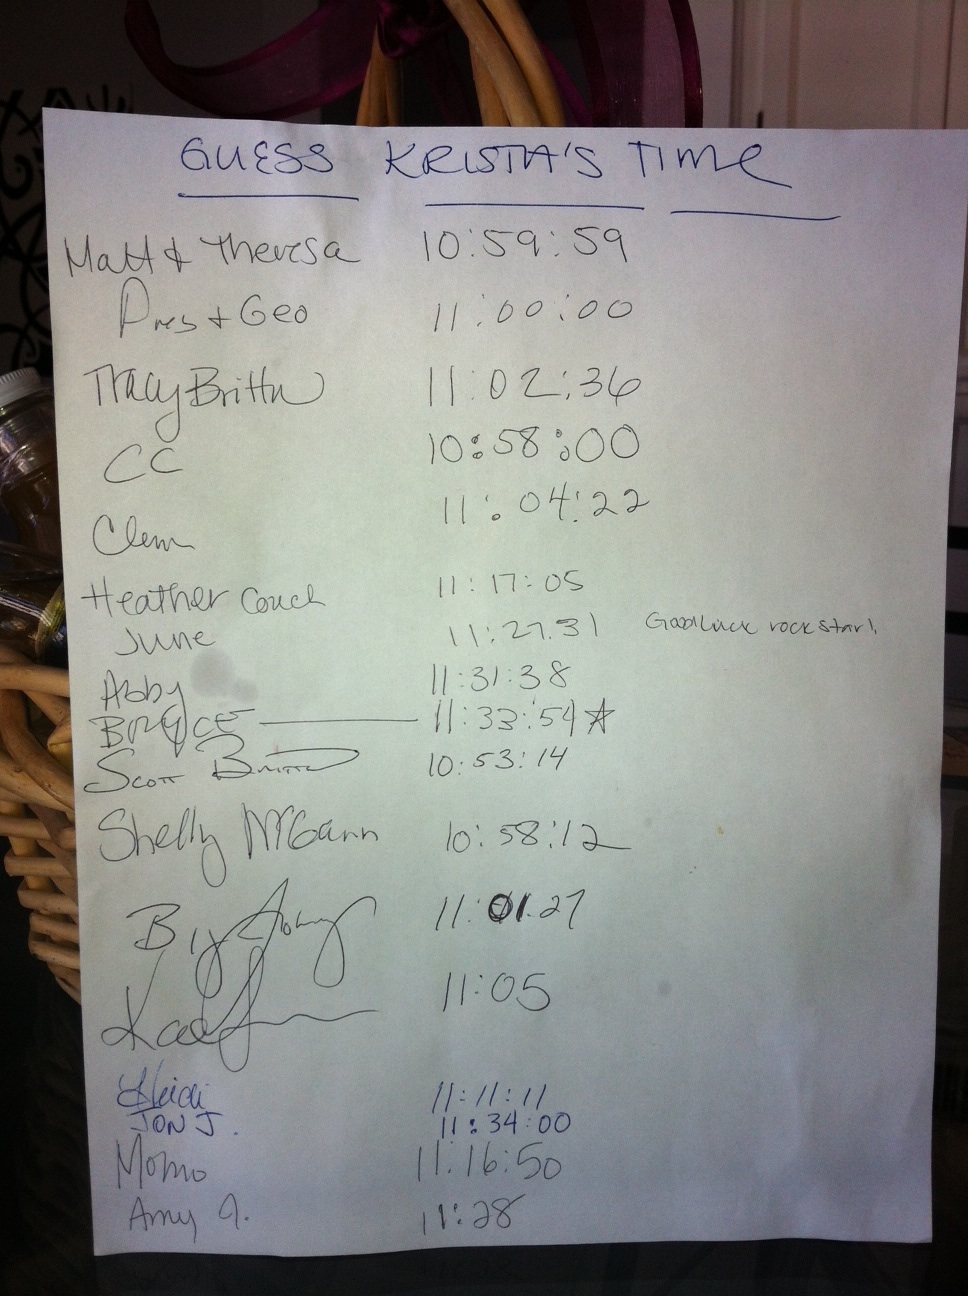 GUESS KRISTA'S TIME
Matt & Theresa 10:59:59
Pres + Geo 11:00:00
Tracy Britton 11:02:36
CC 10:58:00
Clem 11:04:22
Heather Couch 11:17:05
June 11:27.31 Good luck rockstar!
Abby 11:31:38
BRYCE 11:33:54 ☆
Scott Britton 10:53:14
Shelly McGann 10:58:12
Big 11:01.27
11:05
Heidi 11:11:11
JON J. 11:34:00
Momo 11:16:50
Amy J. 11:28